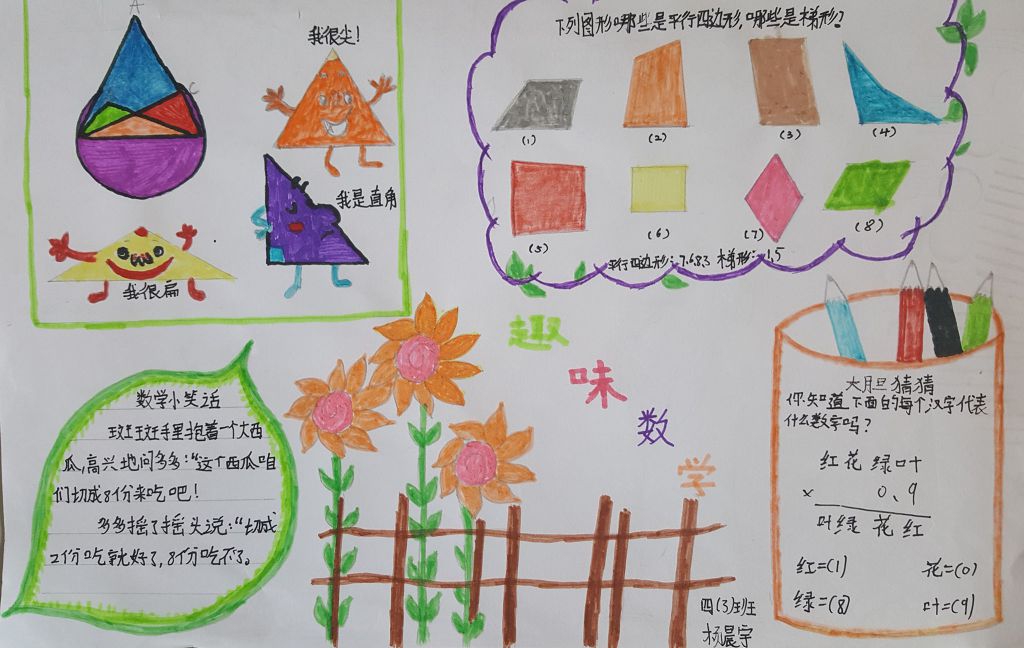 A
C
我很尖！
我是直角
我很扁
下列图形哪些是平行四边形，哪些是梯形？
(1)
(2)
(3)
(4)
(5)
(6)
(7)
(8)
平行四边形：7.6.8.3 梯形：1.5
趣
味
数
学
数学小笑话
斑斑手里抱着一个大西
瓜，高兴地问多多：“这个西瓜咱
们切成8份来吃吧！
多多摇了摇头说：“切成
2份吃就好了，8份吃不了。
大胆猜猜
你知道下面的每个汉字代表
什么数字吗？
红花绿叶
× 0.9
叶绿花红
红=(1) 花=(0)
绿=(8) 叶=(9)
四(3)班
杨晨宇